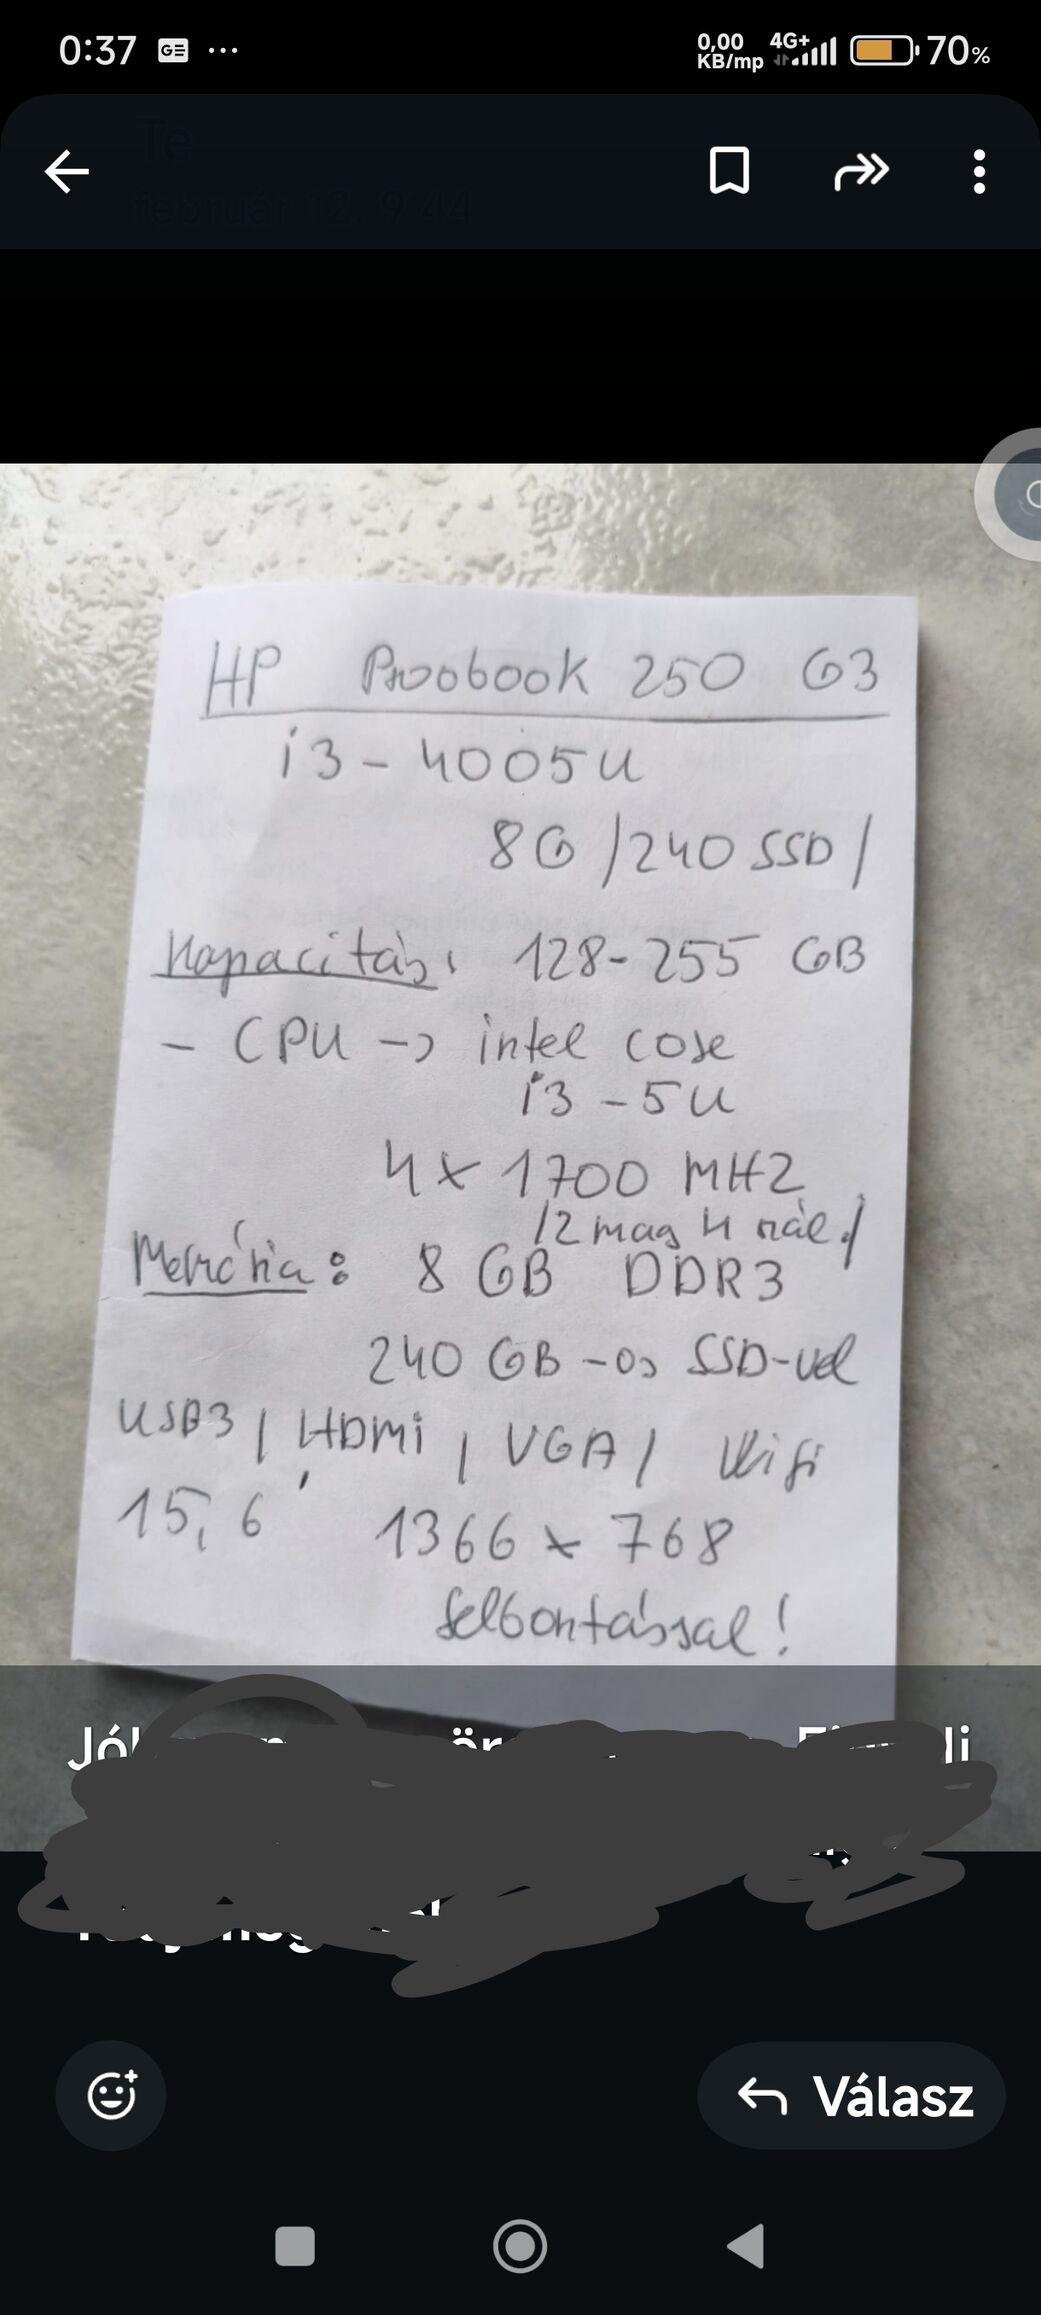 0:37
0,00 KB/mp 4G+ 70%
Te
február 12. 9:44
HP Probook 250 G3
i3 - 4005U
8G /240 SSD/
Kapacitás: 128-255 GB
- CPU -> intel core
i3 - 5U
4x 1700 MHZ
/2 mag 4 szál./
Memória: 8 GB DDR3
240 GB-os SSD-vel
USB3 / HDMi / VGA / Wifi
15,6' 1366 x 768
felbontással!
Válasz